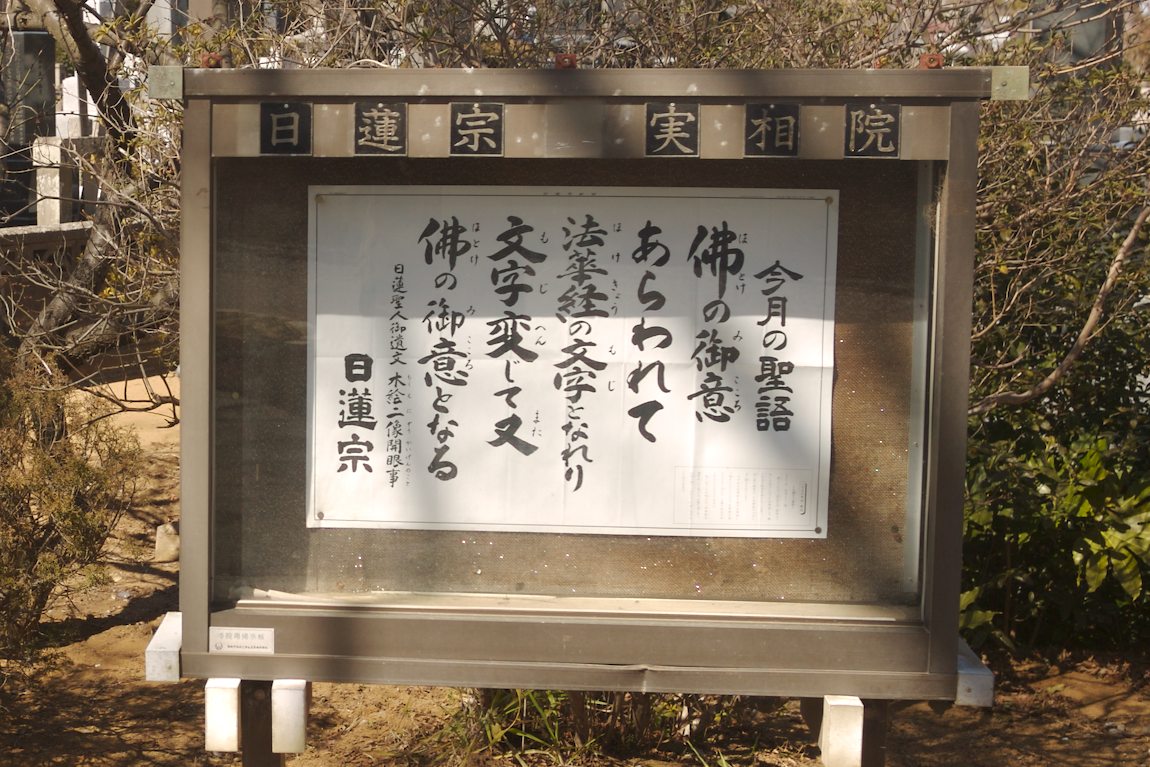 日蓮宗 実相院
今月の聖語
佛の御意
あらわれて
法華経の文字となれり
文字変じて又
佛の御意となる
日蓮聖人御遺文 木絵二像開眼事
日蓮宗